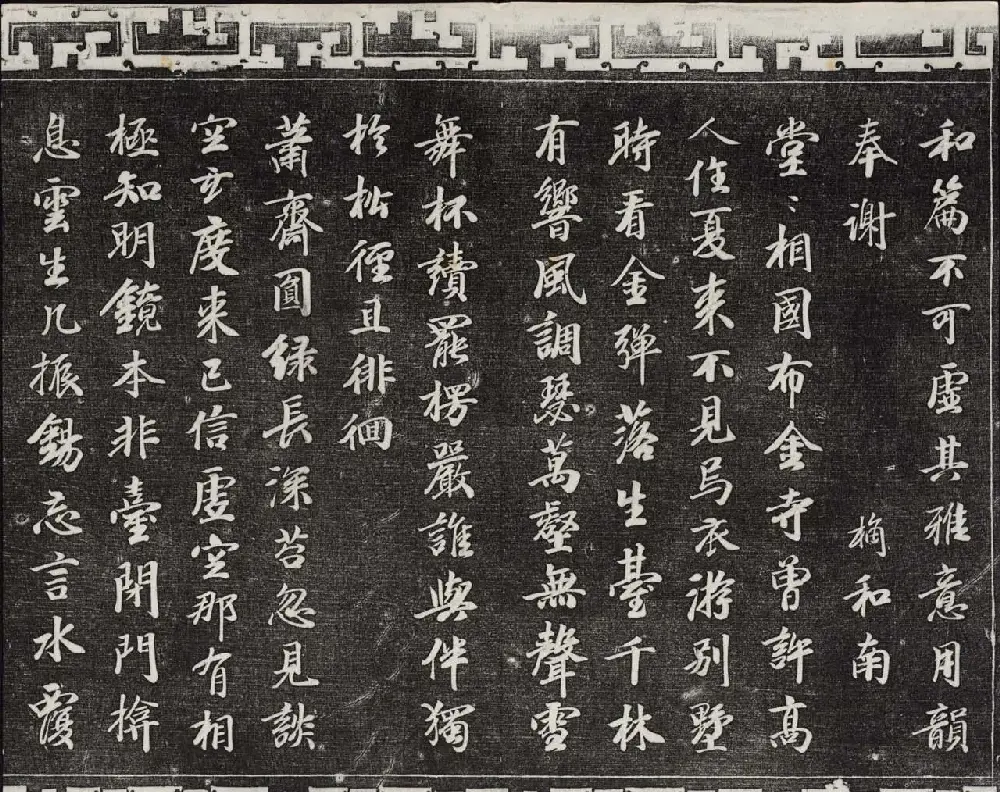 和篇不可虛其雅意用韻
奉謝 楠和南
堂〻相國布金寺曾許高
人住夏来不見烏衣游別墅
時看金彈落生臺千林
有響風調瑟萬壑無聲雪
舞杯讀罷楞嚴誰與伴獨
於松徑且徘徊
蕭齋圓綠長深苔忽見談
空玄度来已信虛空那有相
極知明鏡本非臺閉門揜
息雲生几振錫忘言水覆